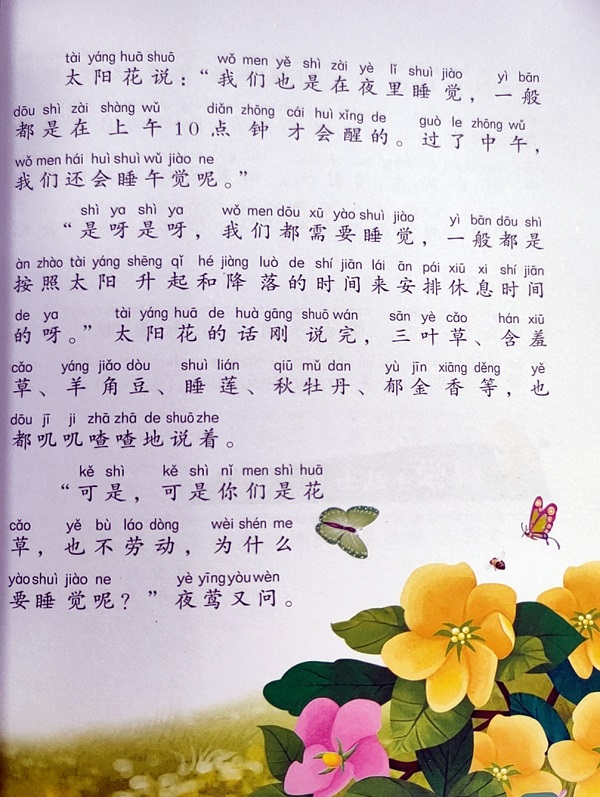 tài yáng huā shuō wǒ men yě shì zài yè lǐ shuì jiào yì bān
太阳花说：“我们也是在夜里睡觉，一般
dōu shì zài shàng wǔ diǎn zhōng cái huì xǐng de guò le zhōng wǔ
都是在上午10点钟才会醒的。过了中午，
wǒ men hái huì shuì wǔ jiào ne
我们还会睡午觉呢。”
shì ya shì ya wǒ men dōu xū yào shuì jiào yì bān dōu shì
“是呀是呀，我们都需要睡觉，一般都是
àn zhào tài yáng shēng qǐ hé jiàng luò de shí jiān lái ān pái xiū xi shí jiān
按照太阳升起和降落的时间来安排休息时间
de ya tài yáng huā de huà gāng shuō wán sān yè cǎo hán xiū
的呀。”太阳花的话刚说完，三叶草、含羞
cǎo yáng jiǎo dòu shuì lián qiū mǔ dan yù jīn xiāng děng yě
草、羊角豆、睡莲、秋牡丹、郁金香等，也
dōu jī ji zhā zhā de shuō zhe
都叽叽喳喳地说着。
kě shì kě shì nǐ men shì huā
“可是，可是你们是花
cǎo yě bù láo dòng wèi shén me
草，也不劳动，为什么
yào shuì jiào ne yè yīng yòu wèn
要睡觉呢？”夜莺又问。